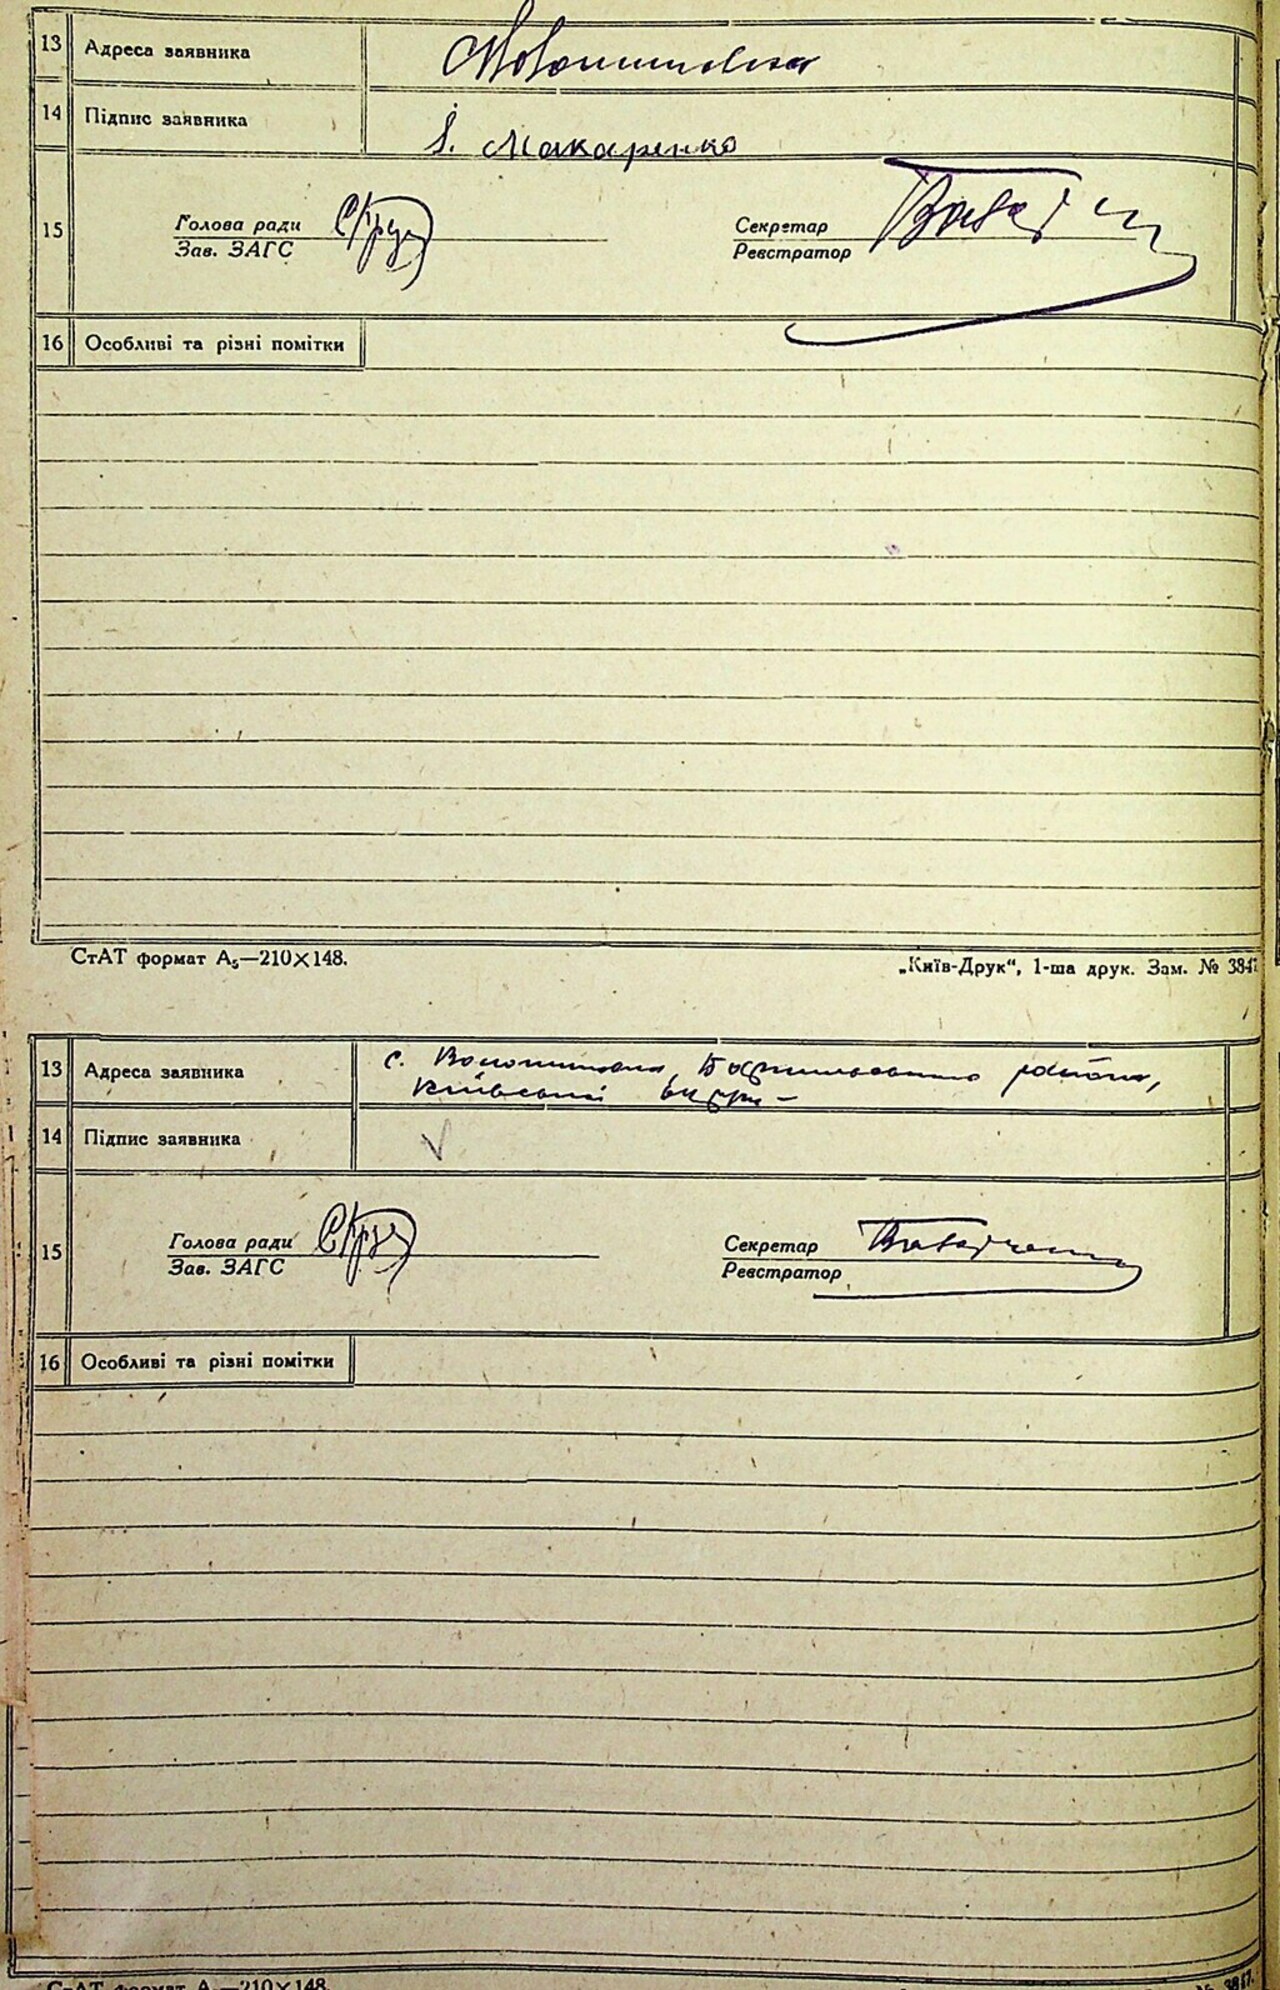 13 Адреса заявника Волошинівка
14 Підпис заявника І. Макаренко
15 Голова ради Секретар
Зав. ЗАГС Реєстратор
16 Особливі та різні помітки
СтАТ формат А₅—210×148. „Київ-Друк“, 1-ша друк. Зам. № 3847
13 Адреса заявника с. Волошинівка, Бориспільського району,
Київської округи
14 Підпис заявника
15 Голова ради Секретар
Зав. ЗАГС Реєстратор
16 Особливі та різні помітки
СтАТ формат А₅—210×148. № 3847.